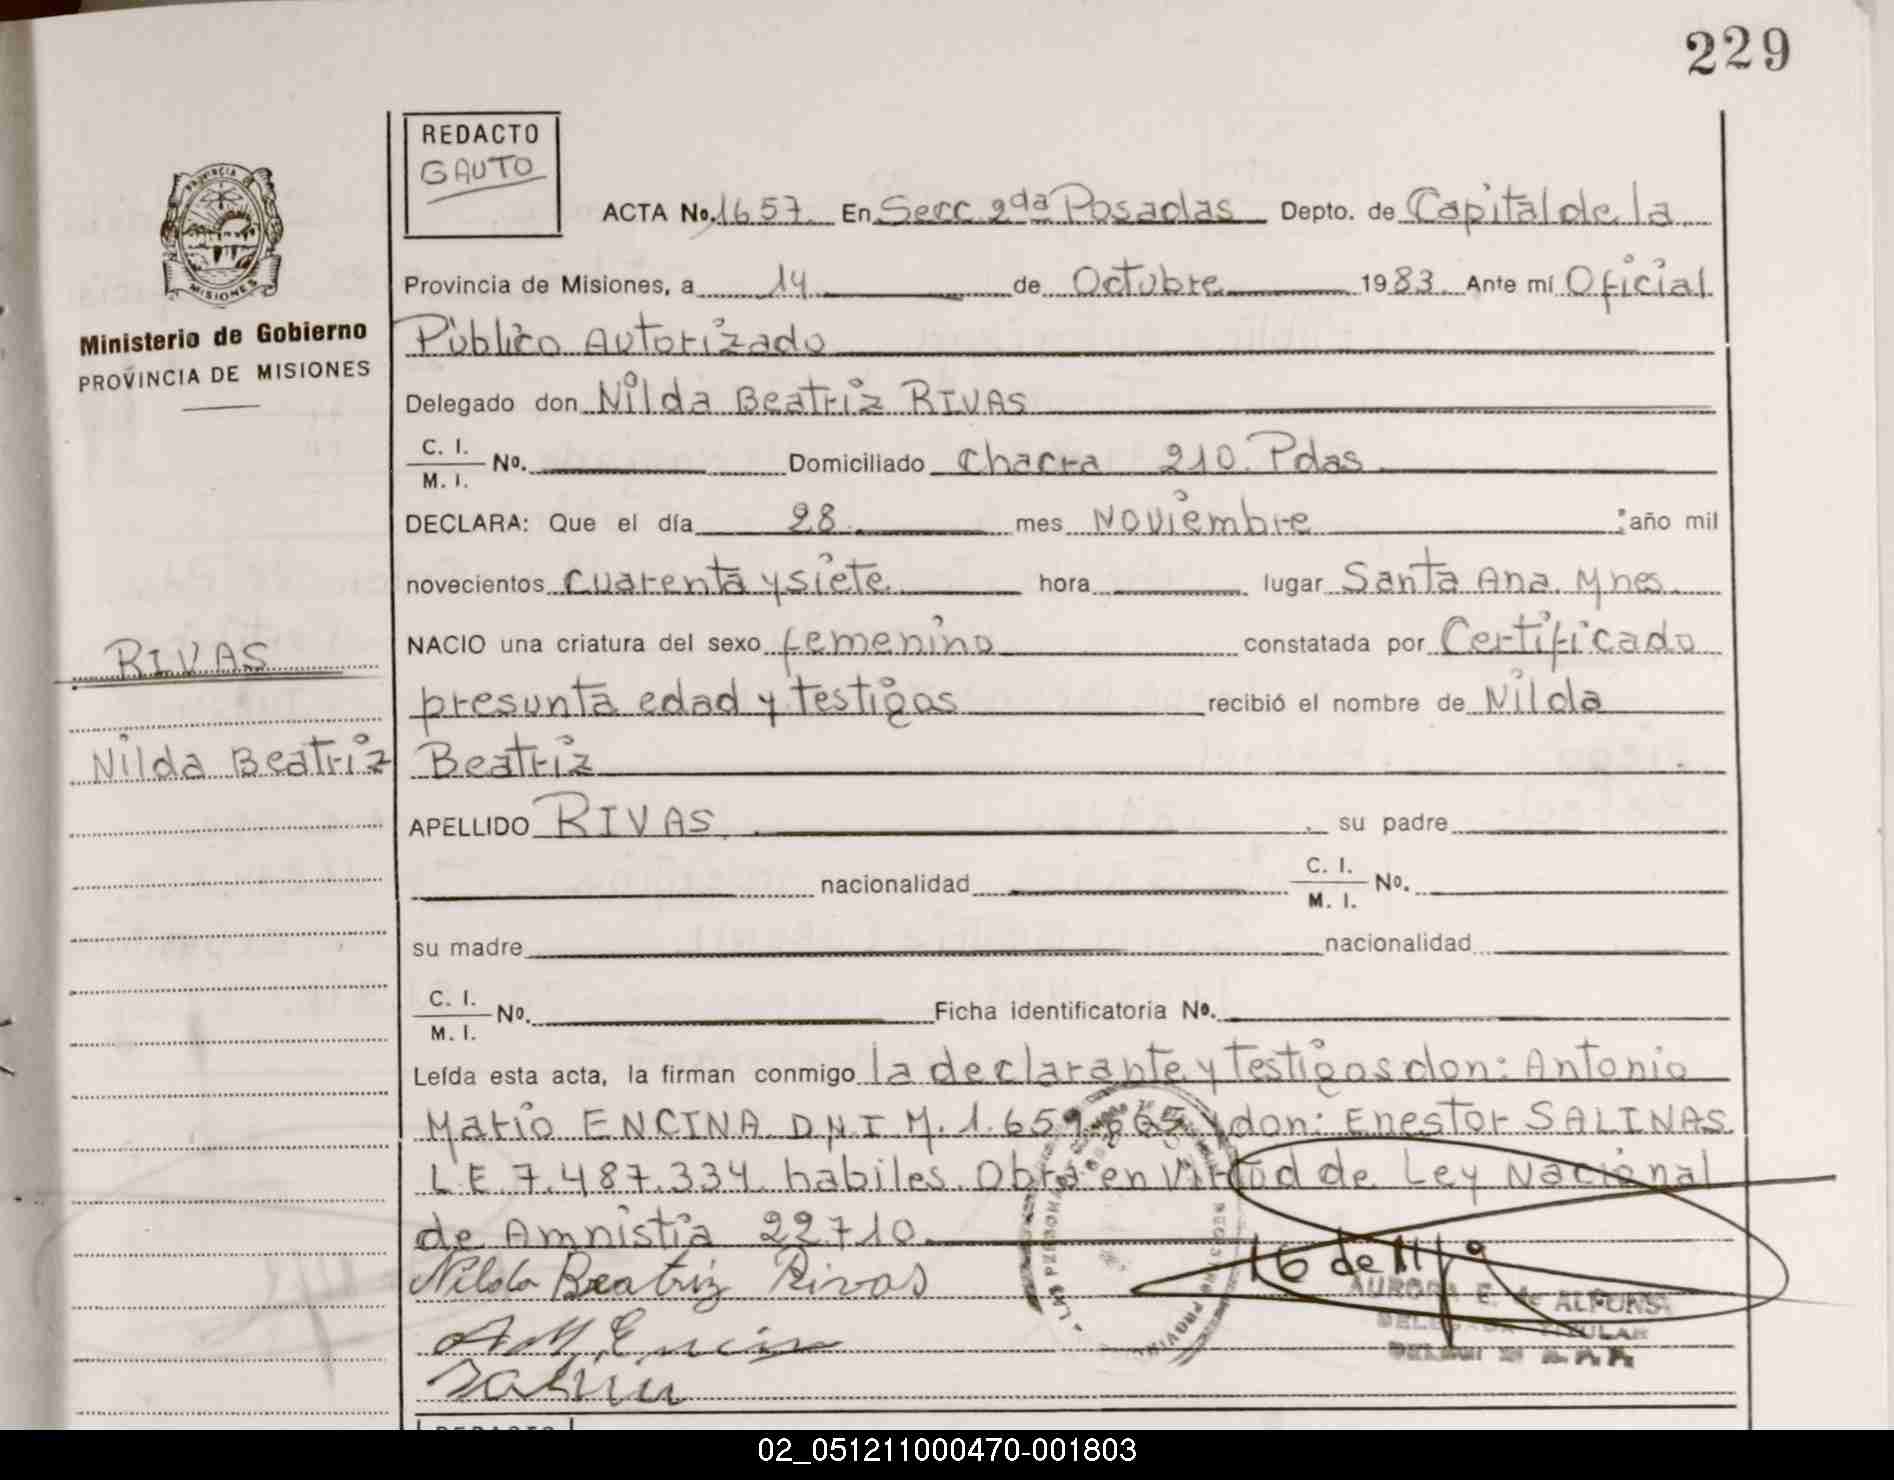 229
REDACTO
GAUTO
ACTA No. 1657 En Secc 2da Posadas Depto. de Capital de la
PROVINCIA DE
MISIONES
Provincia de Misiones, a 14 de Octubre 1983 Ante mí Oficial
Ministerio de Gobierno
Público Autorizado
PROVINCIA DE MISIONES
Delegado don Nilda Beatriz RIVAS
C. I.
M. I. No. Domiciliado Chacra 210. Pdas.
DECLARA: Que el día 28 mes Noviembre año mil
novecientos cuarenta y siete hora lugar Santa Ana. Mnes.
RIVAS
NACIO una criatura del sexo femenino constatada por Certificado
presunta edad y testigos recibió el nombre de Nilda
Nilda Beatriz
Beatriz
APELLIDO RIVAS su padre
nacionalidad C. I.
M. I. No.
su madre nacionalidad
C. I.
M. I. No. Ficha identificatoria No.
Leída esta acta, la firman conmigo la declarante y testigos don: Antonio
Mario ENCINA D.N.I M. 1.659. y don: Enestor SALINAS
L.E. 7.487.334. habiles. Obra en Virtud de Ley Nacional
de Amnistia 22710.
Nilda Beatriz Rivas
16 de
AURORA E. de ALFONSI
A M. Encina
DELEGADA TITULAR
Salinas
REDACTO
02_051211000470-001803